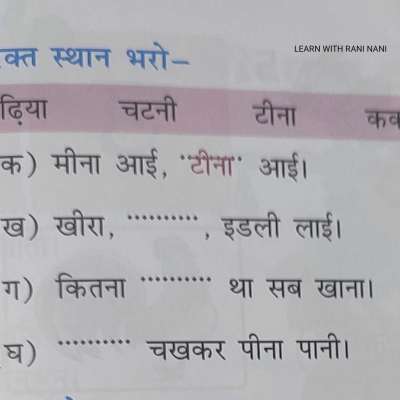 LEARN WITH RANI NANI
रिक्त स्थान भरो–
ढ़िया चटनी टीना
क) मीना आई, "टीना" आई।
ख) खीरा, .........., इडली लाई।
ग) कितना .......... था सब खाना।
घ) .......... चखकर पीना पानी।